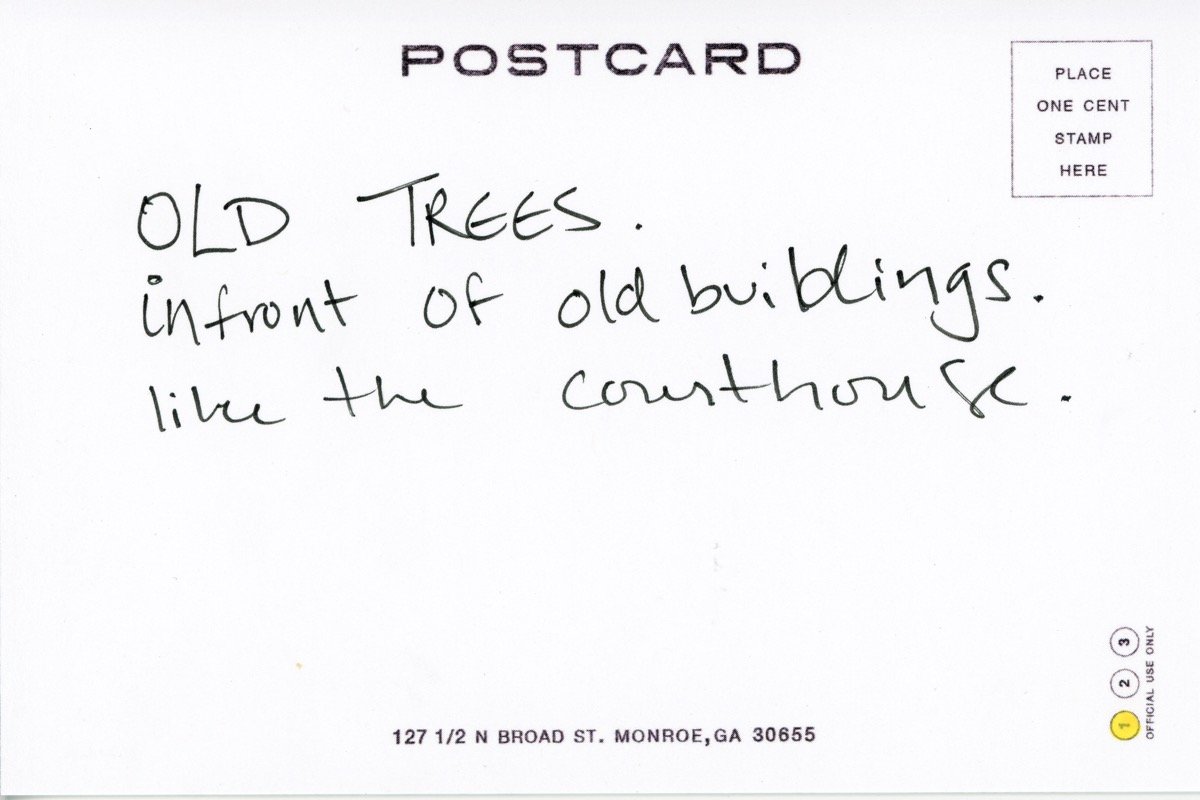 POSTCARD
PLACE
ONE CENT
STAMP
HERE
OLD TREES.
infront of old buiblings.
like the courthouse.
127 1/2 N BROAD ST. MONROE,GA 30655
1 2 3
OFFICIAL USE ONLY